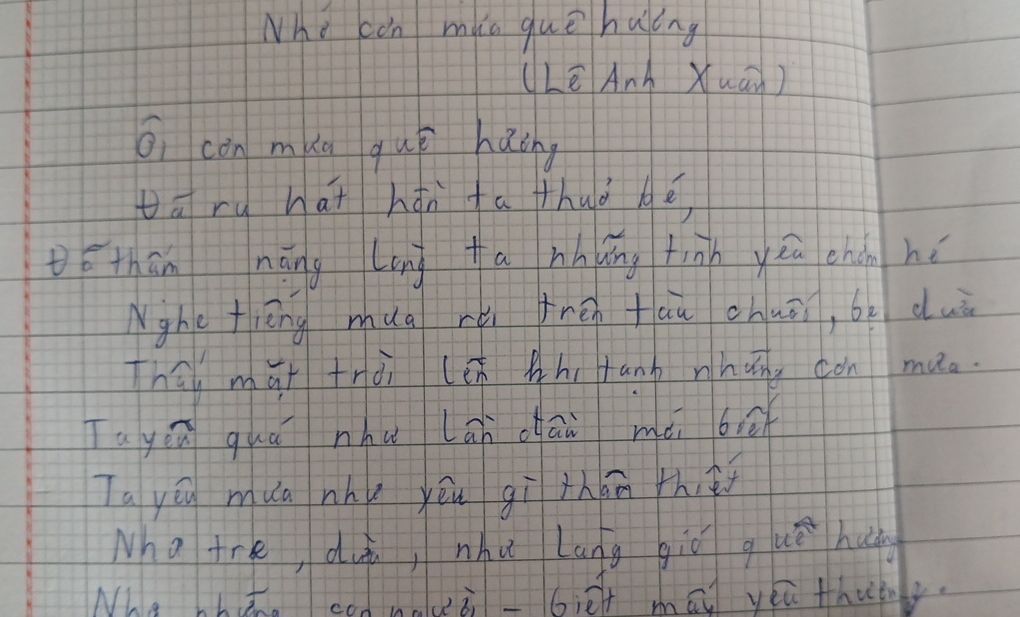 Nhớ cơn mưa quê hương
(Lê Anh Xuân)
Ôi cơn mưa quê hương
Đã ru hát hồn ta thuở bé,
Đã thấm nặng lòng ta những tình yêu chớm hé
Nghe tiếng mưa rơi trên tàu chuối, bẹ dừa
Thấy mặt trời lên khi tạnh những cơn mưa.
Ta yêu quá như lần đầu mới biết
Ta yêu mưa như yêu gì thân thiết
Như tre, dừa, như làng gió quê hương
Như những con người - biết mấy yêu thương.